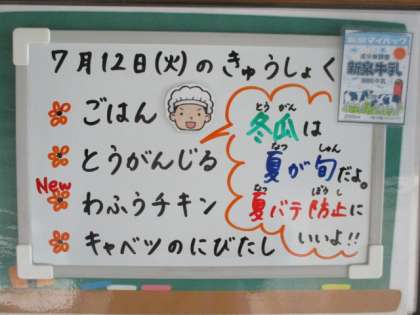 7月12日(火)のきゅうしょく
ごはん
とうがんじる
New
わふうチキン
キャベツのにびたし
とうがん
冬瓜は
なつ しゅん
夏が旬だよ。
なつ ぼうし
夏バテ防止に
いいよ!!
新泉牛乳